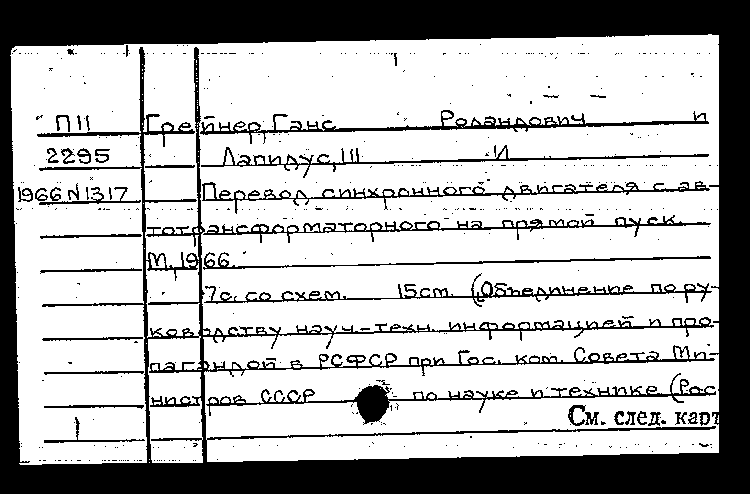 П11 Грейнер, Ганс Роландович и
2295 Лапидус, Ш И
1966 N1317 Перевод синхронного двигателя с ав-
тотрансформаторного на прямой пуск.
М., 1966.
7с. со схем. 15см. (Объединение по ру-
ководству науч-техн. информацией и про-
пагандой в РСФСР при Гос. ком. Совета Ми-
нистров СССР по науке и технике (Рос
См. след. карт
1